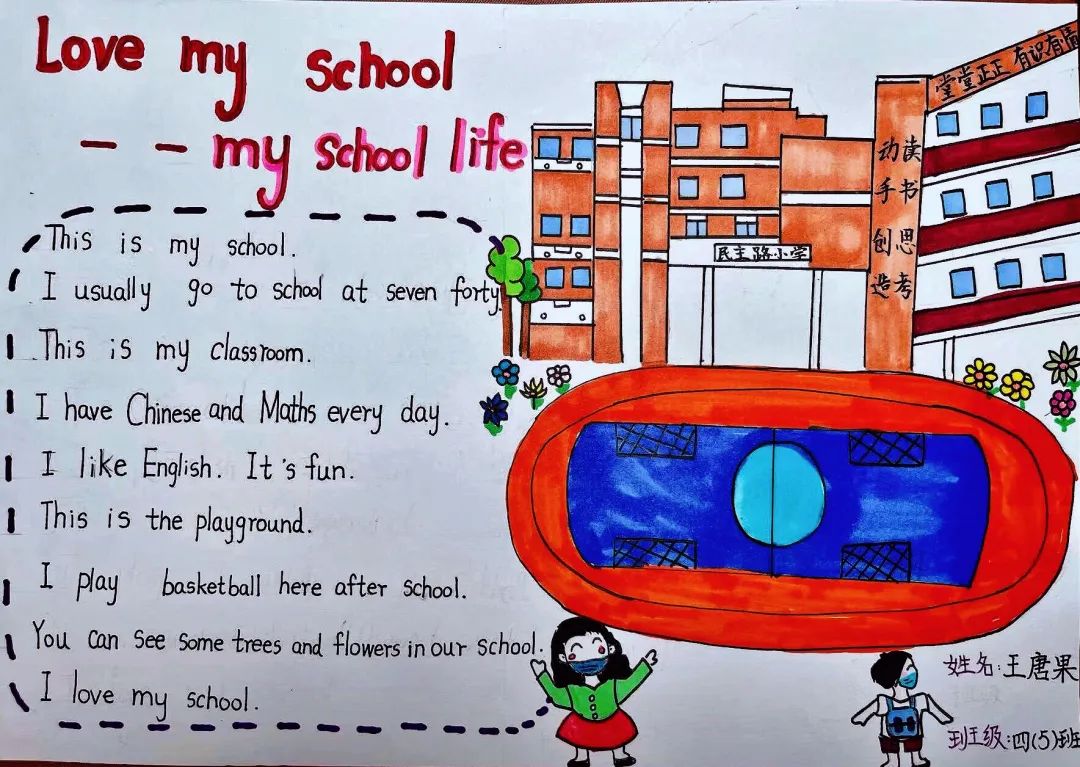 Love my school
-- my school life
This is my school.
I usually go to school at seven forty.
This is my classroom.
I have Chinese and Maths every day.
I like English. It's fun.
This is the playground.
I play basketball here after school.
You can see some trees and flowers in our school.
I love my school.
民主路小学
读书思考
动手创造
堂堂正正 有识有情
姓名:王唐果
班级:四(5)班